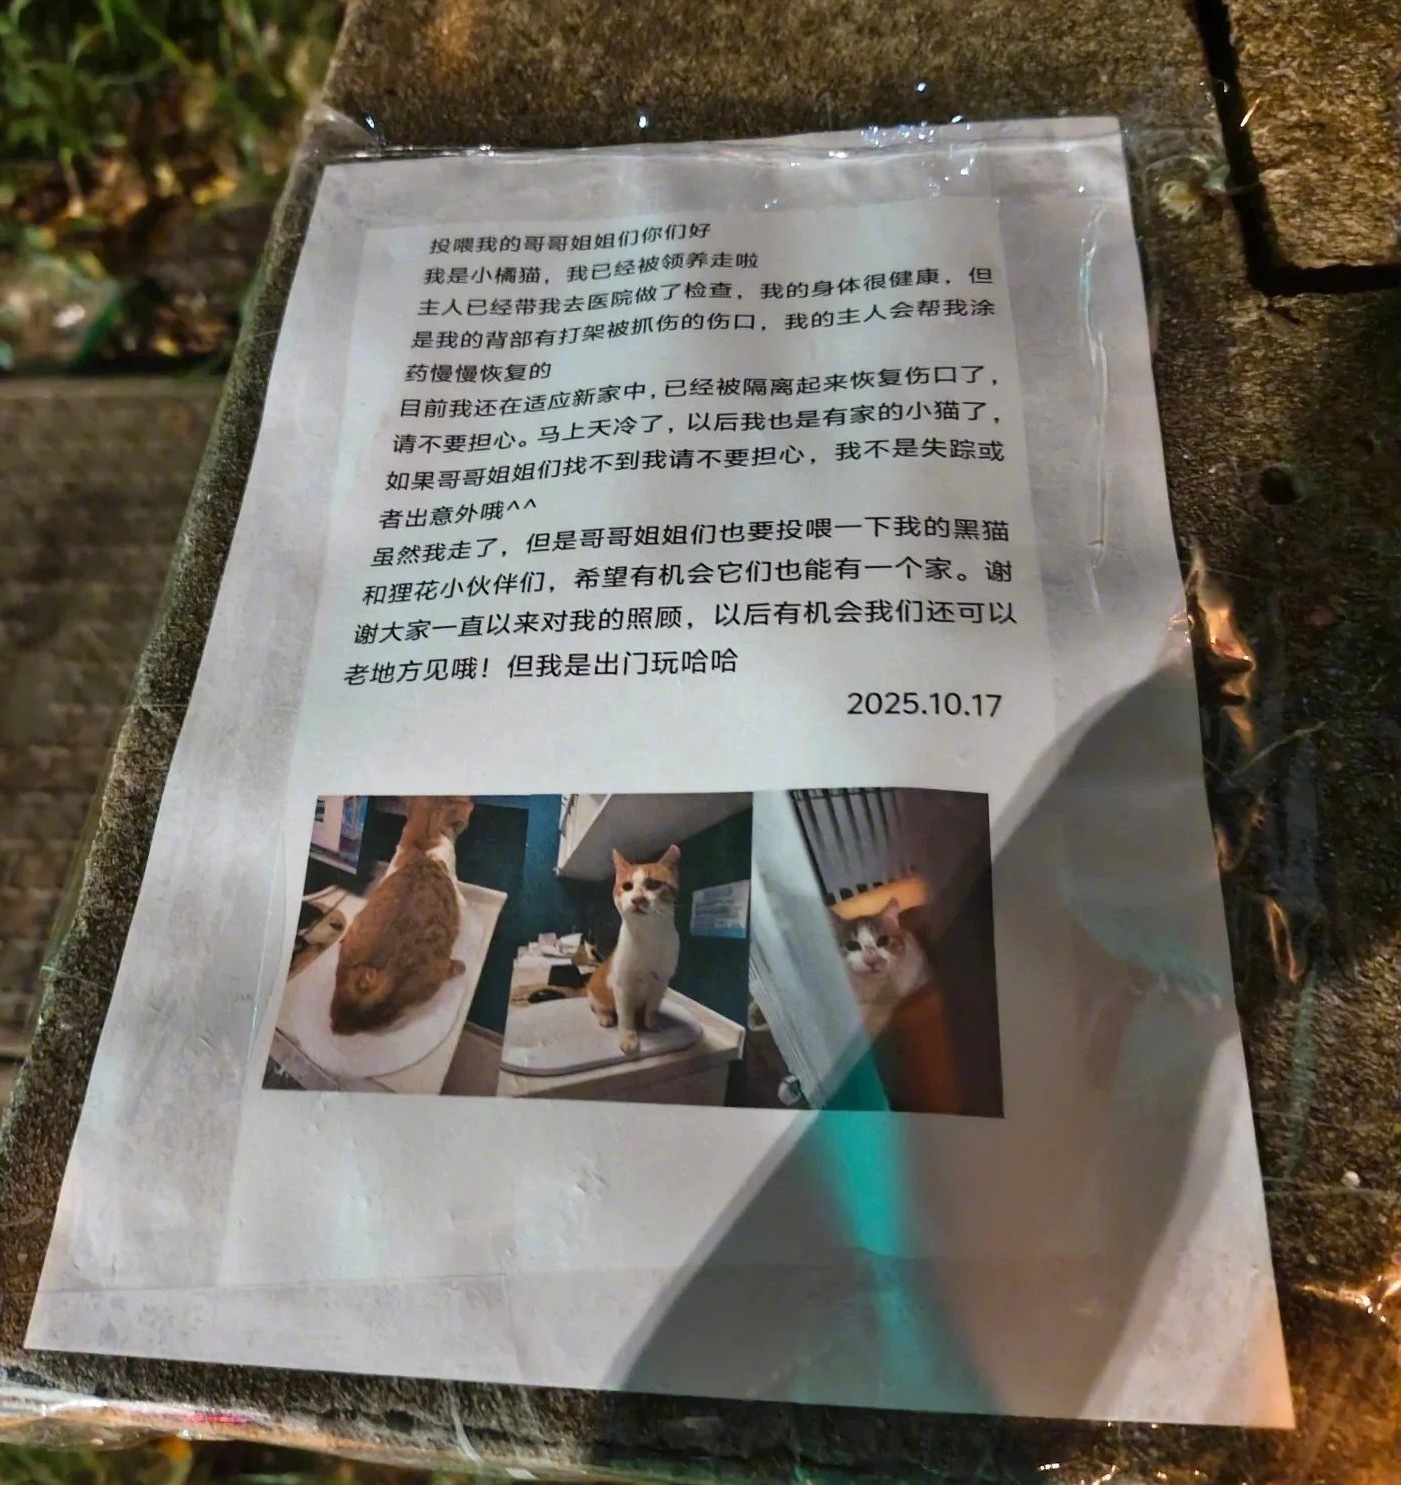 投喂我的哥哥姐姐们你们好
我是小橘猫，我已经被领养走啦
主人已经带我去医院做了检查，我的身体很健康，但
是我的背部有打架被抓伤的伤口，我的主人会帮我涂
药慢慢恢复的
目前我还在适应新家中，已经被隔离起来恢复伤口了，
请不要担心。马上天冷了，以后我也是有家的小猫了，
如果哥哥姐姐们找不到我请不要担心，我不是失踪或
者出意外哦^^
虽然我走了，但是哥哥姐姐们也要投喂一下我的黑猫
和狸花小伙伴们，希望有机会它们也能有一个家。谢
谢大家一直以来对我的照顾，以后有机会我们还可以
老地方见哦！但我是出门玩哈哈
2025.10.17